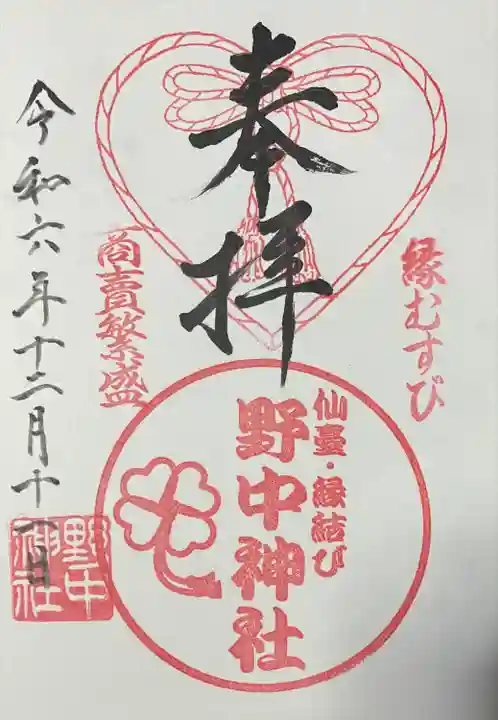 奉拝
縁むすび
商賣繁盛
仙臺・縁結び
野中神社
令和六年十二月十一日
野中神社